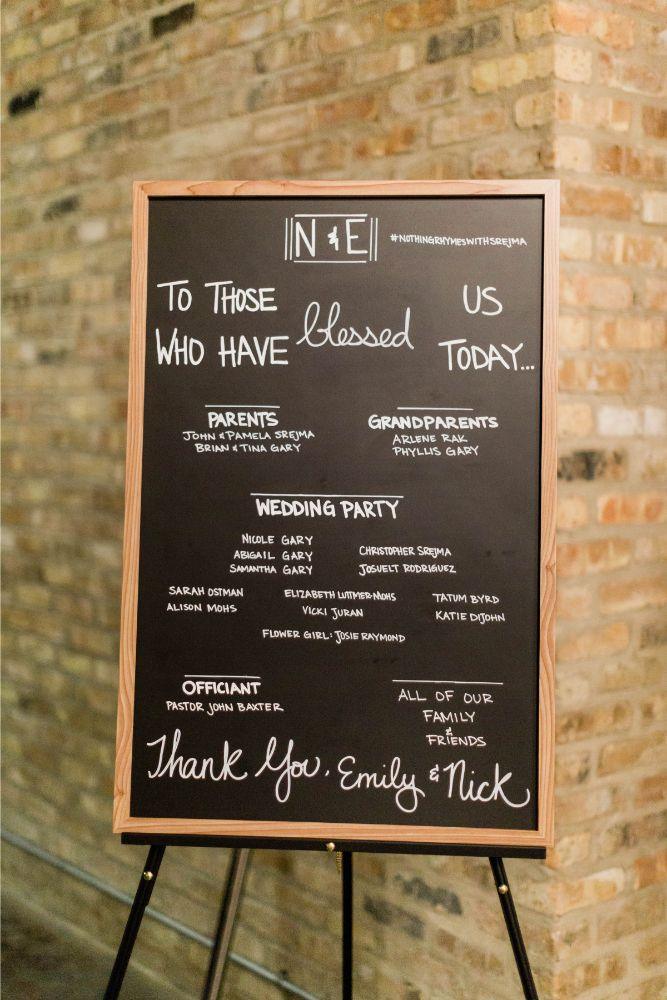 N & E
#NOTHINGRHYMESWITHSREJMA
TO THOSE
WHO HAVE
blessed
US
TODAY...
PARENTS
JOHN & PAMELA SREJMA
BRIAN & TINA GARY
GRANDPARENTS
ARLENE RAK
PHYLLIS GARY
WEDDING PARTY
NICOLE GARY
ABIGAIL GARY
SAMANTHA GARY
CHRISTOPHER SREJMA
JOSUELT RODRIGUEZ
SARAH OSTMAN
ALISON MOHS
ELIZABETH LUTMER-MOHS
VICKI JURAN
TATUM BYRD
KATIE DIJOHN
FLOWER GIRL: JOSIE RAYMOND
OFFICIANT
PASTOR JOHN BAXTER
ALL OF OUR
FAMILY
&
FRIENDS
Thank You, Emily & Nick